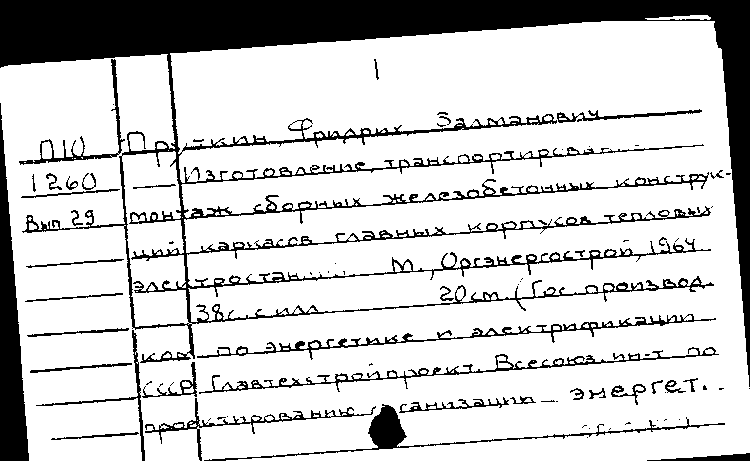 1
П10 Пруткин, Фридрих Залманович
1260 Изготовление, транспортировка
Вып 29 монтаж сборных железобетонных конструк-
ций каркасов главных корпусов тепловых
электростан М., Оргэнергострой, 1964
38с. с илл 20см. (Гос. производ.
ком по энергетике и электрификации
СССР Главтехстройпроект. Всесоюз. ин-т по
проектированию организации энергет.